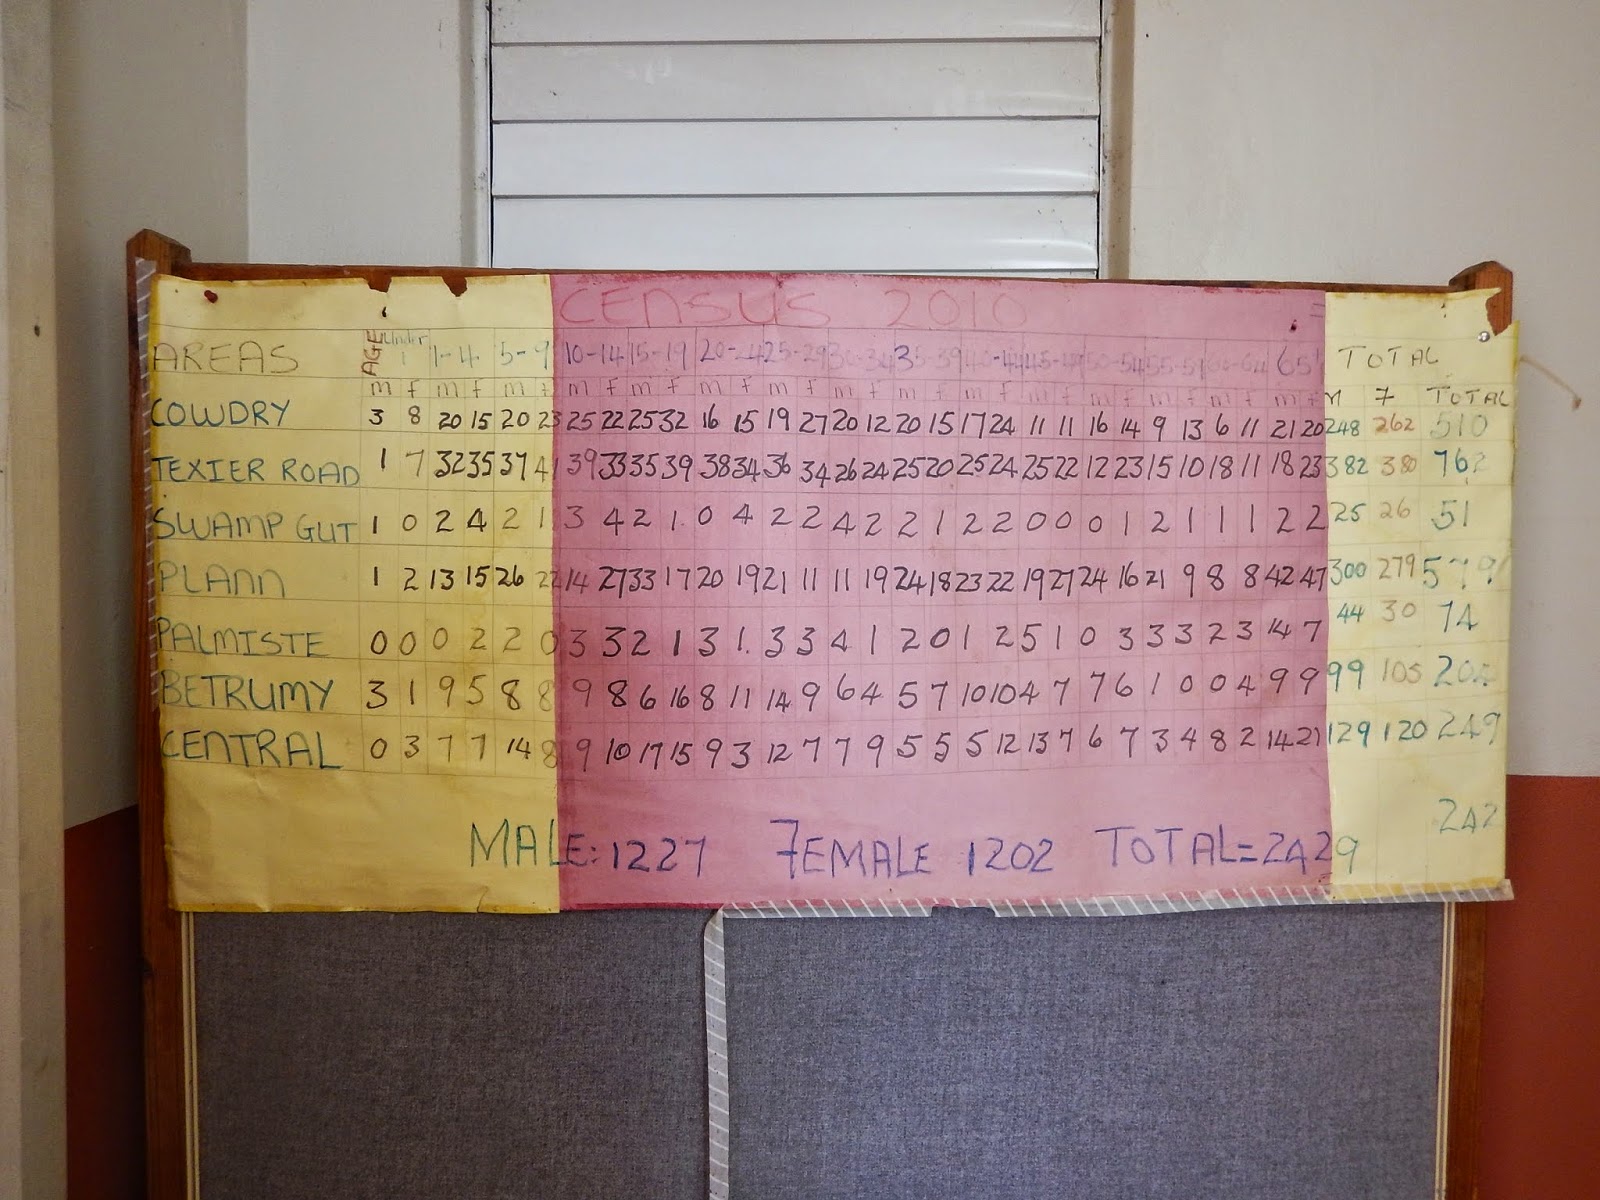 CENSUS 2010
AREAS AGE Under 1 1-4 5-9 10-14 15-19 20-24 25-29 30-34 35-39 40-44 45-49 50-54 55-59 60-64 65+ TOTAL
m f m f m f m f m f m f m f m f m f m f m f m f m f m f m f M F TOTAL
COWDRY 3 8 20 15 20 23 25 22 25 32 16 15 19 27 20 12 20 15 17 24 11 11 16 14 9 13 6 11 21 20 248 262 510
TEXIER ROAD 1 7 32 35 37 41 39 33 35 39 38 34 36 34 26 24 25 20 25 24 25 22 12 23 15 10 18 11 18 23 382 380 762
SWAMP GUT 1 0 2 4 2 1 3 4 2 1 0 4 2 2 4 2 2 1 2 2 0 0 0 1 2 1 1 1 2 2 25 26 51
PLANN 1 2 13 15 26 22 14 27 33 17 20 19 21 11 11 19 24 18 23 22 19 27 24 16 21 9 8 8 42 47 300 279 579
PALMISTE 0 0 0 2 2 0 3 3 2 1 3 1. 3 3 4 1 2 0 1 2 5 1 0 3 3 3 2 3 14 7 44 30 74
BETRUMY 3 1 9 5 8 8 9 8 6 16 8 11 14 9 6 4 5 7 10 10 4 7 7 6 1 0 0 4 9 9 99 105 204
CENTRAL 0 3 7 7 14 8 9 10 17 15 9 3 12 7 7 9 5 5 5 12 13 7 6 7 3 4 8 2 14 21 129 120 249
242
MALE: 1227 FEMALE 1202 TOTAL=2429